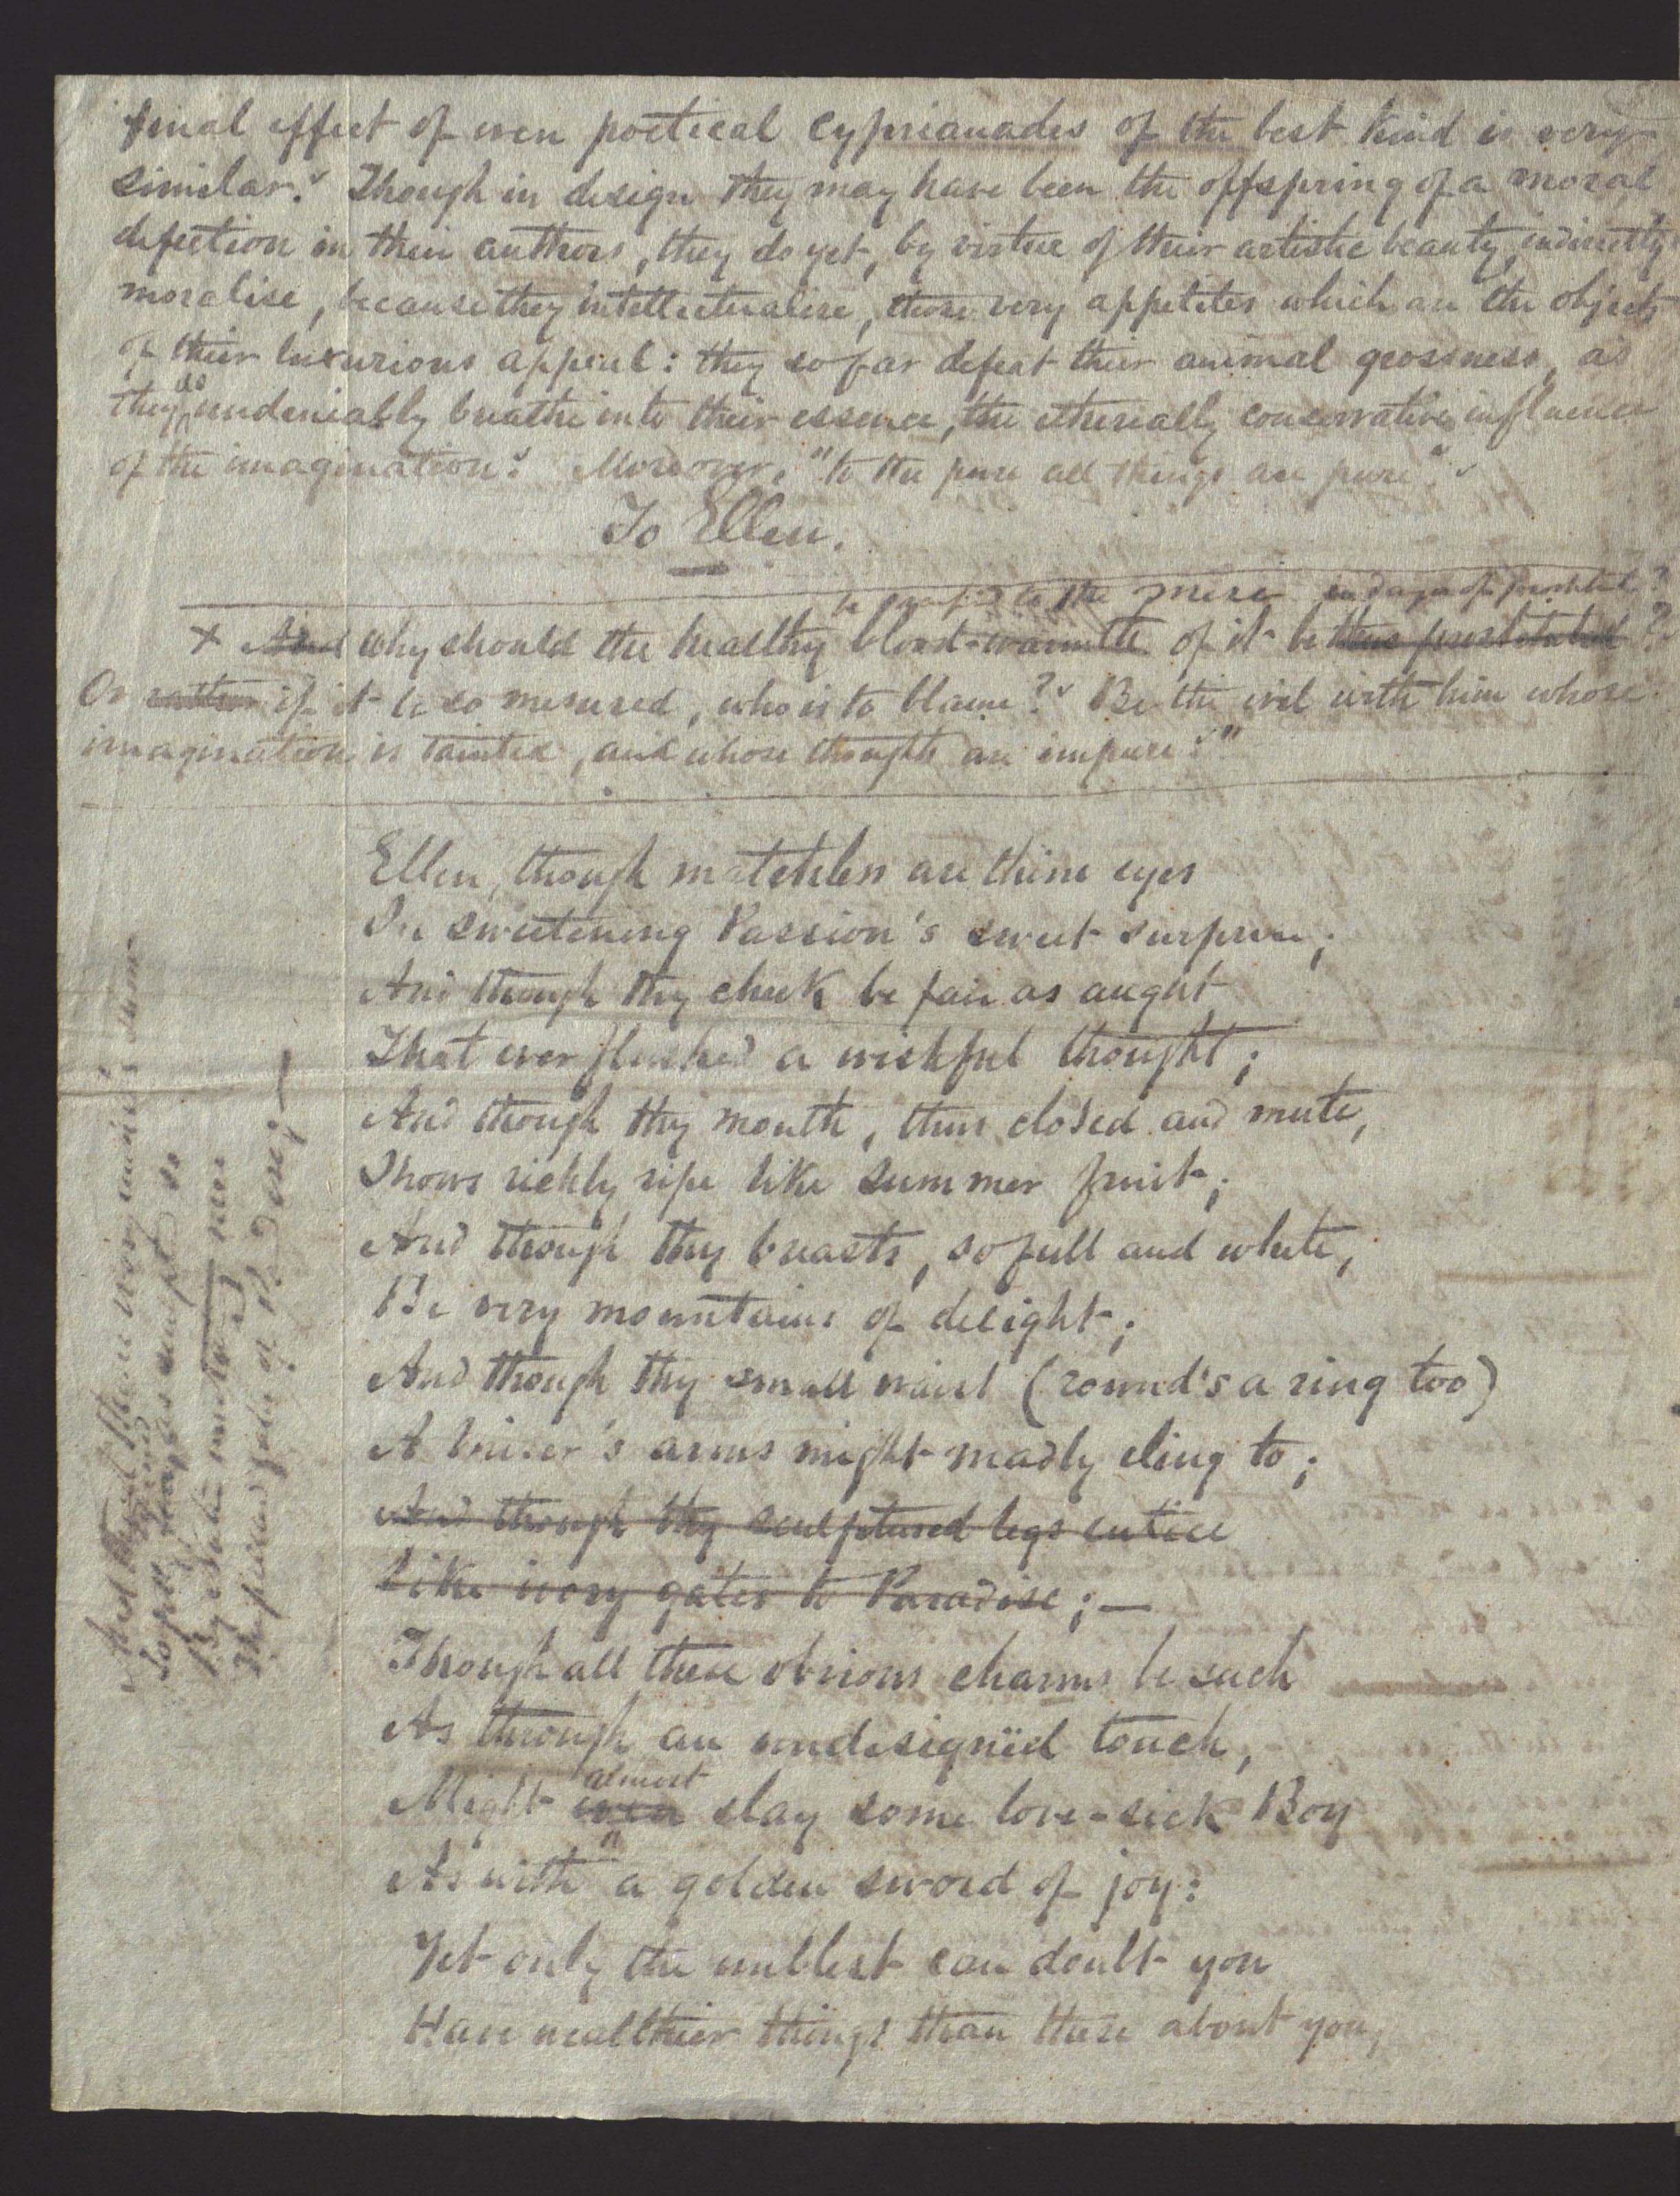 final effect of even poetical cyprianades of the best kind is very
similar. Though in design they may have been the offspring of a moral
defection in their authors, they do yet, by virtue of their artistic beauty, indirectly
moralise, because they intellectualise, those very appetites which are the objects
of their luxurious appeal: they so far defeat their animal grossness, as
they do undeniably breathe into their essence, the ethereally conservative influence
of the imagination. Moreover, "to the pure all things are pure".
To Ellen.
to the mere
+ And why should the healthy blood-warmth of it be thus prostituted?
Or rather if it be so misused, who is to blame? Be the evil with him whose
imagination is tainted, and whose thoughts are impure."
Ellen, though matchless are thine eyes
In sweetening Passion's sweet surprise;
And though thy cheek be fair as aught
That ever flushed a wishful thought;
And though thy mouth, thus closed and mute,
Shows richly ripe like summer fruit;
And though thy breasts, so full and white,
Be very mountains of delight;
And though thy small waist (round as a ring too)
A 's arms might madly cling to;
And though thy sculptured legs entice
Like ivory gates to Paradise;—
Though all these obvious charms be such
As through an undesignëd touch,
Might even almost slay some love-sick Boy
As with a golden sword of joy:
Yet only the unblest can doubt you
Have wealthier things than these about you,
And thy thighs than ivory
So
By